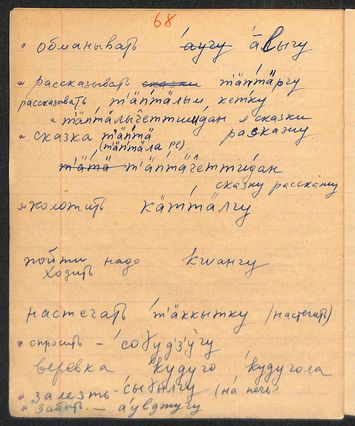 68
* обманывать а́угу а̄́выгу
* рассказывать сказки тӓптӓргу
рассказывать тӓптӓлым, кетку
* тӓптӓлычеттиндан я сказки
* сказка тӓптӓ расскажу
(тӓптӓла pl.)
тӓтӓ тӓптӓчеттиндан
сказку расскажу
* колотить кӓттӓлгу
пойти надо кwангу
ходить
настегать тӓккытку (настегать)
* спросить – согудзугу
веревка кудуго кудугола
* залезть – сыгылгу (на печь)
* забыть – аувджугу